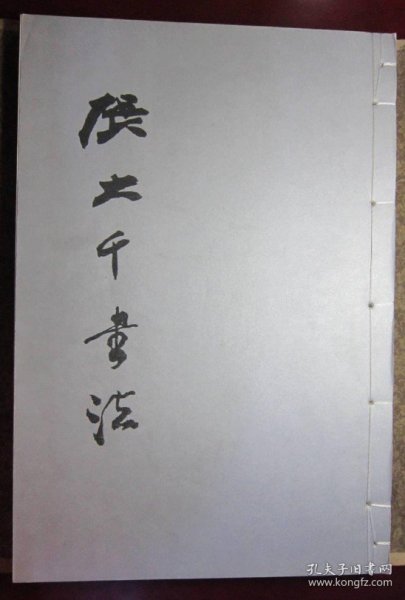 张大千书法
孔夫子旧书网
www.kongfz.com